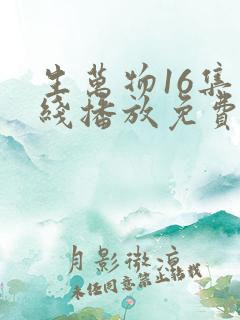 生萬物16集
綫播放免費
月影微涼
未经同意禁止转载